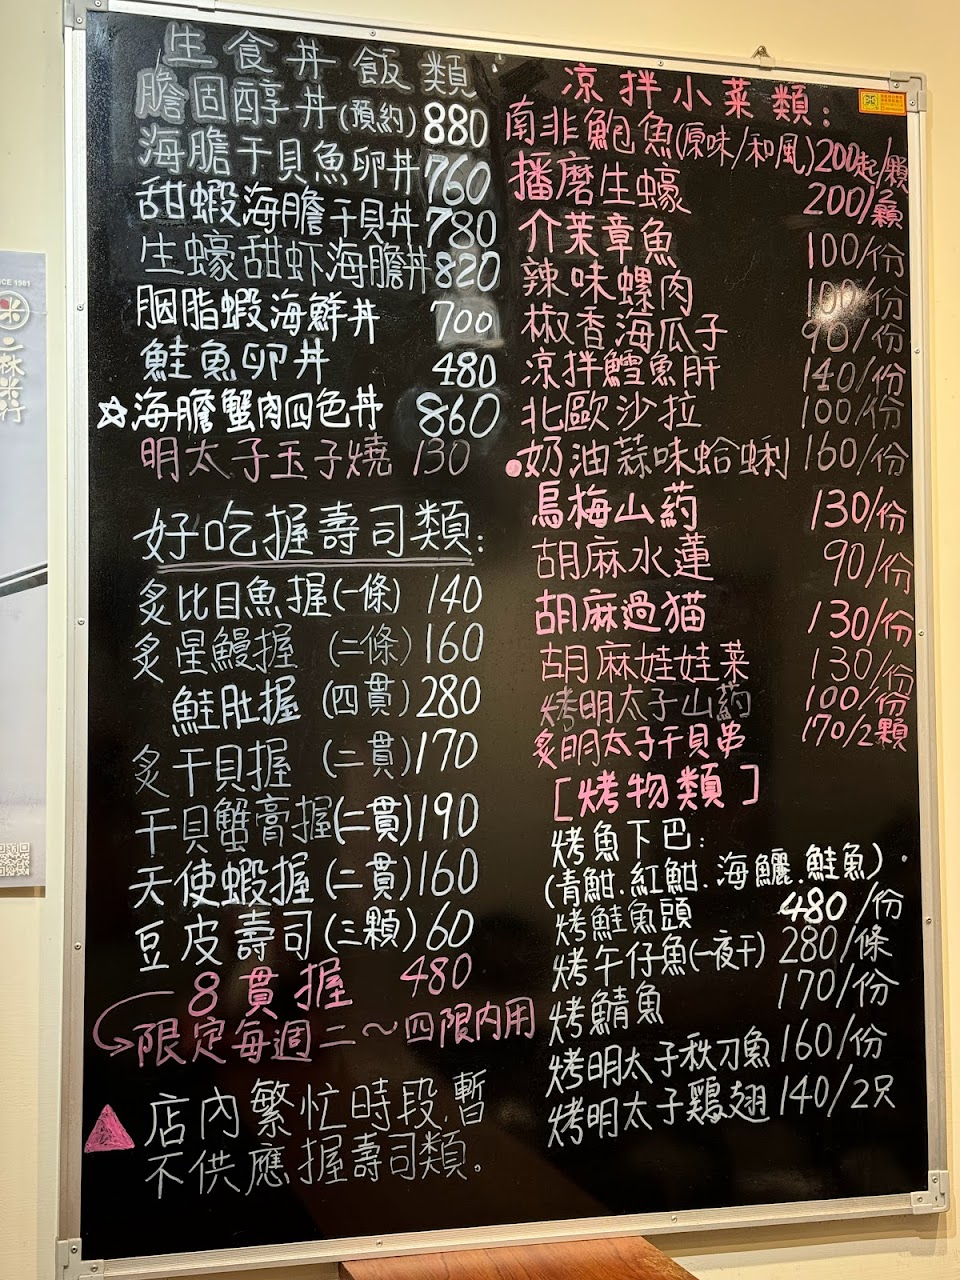 生食丼飯類:
膽固醇丼(預約) 880
海膽干貝魚卵丼 760
甜蝦海膽干貝丼 780
生蠔甜虾海膽丼 820
胭脂蝦海鮮丼 700
鮭魚卵丼 480
☆海膽蟹肉四色丼 860
明太子玉子燒 130
好吃握壽司類:
炙比目魚握(一條) 140
炙星鰻握 (二條) 160
鮭肚握 (四貫) 280
炙干貝握 (二貫) 170
干貝蟹膏握(二貫) 190
天使蝦握 (二貫) 160
豆皮壽司(三顆) 60
8貫握 480
限定每週二~四限內用
▲店內繁忙時段.暫
不供應握壽司類。
涼拌小菜類:
南非鮑魚(原味/和風)200起/顆
播磨生蠔 200/2顆
介茉章魚 100/份
辣味螺肉 100/份
椒香海瓜子 90/份
涼拌鱈魚肝 140/份
北歐沙拉 100/份
•奶油蒜味蛤蜊 160/份
烏梅山葯 130/份
胡麻水蓮 90/份
胡麻過猫 130/份
胡麻娃娃菜 130/份
烤明太子山葯 100/份
炙明太子干貝串 170/2顆
[烤物類]
烤魚下巴:
(青魽.紅魽.海鱺.鮭魚)
烤鮭魚頭 480/份
烤午仔魚(一夜干) 280/條
烤鯖魚 170/份
烤明太子秋刀魚 160/份
烤明太子鶏翅 140/2只
SINCE 1981